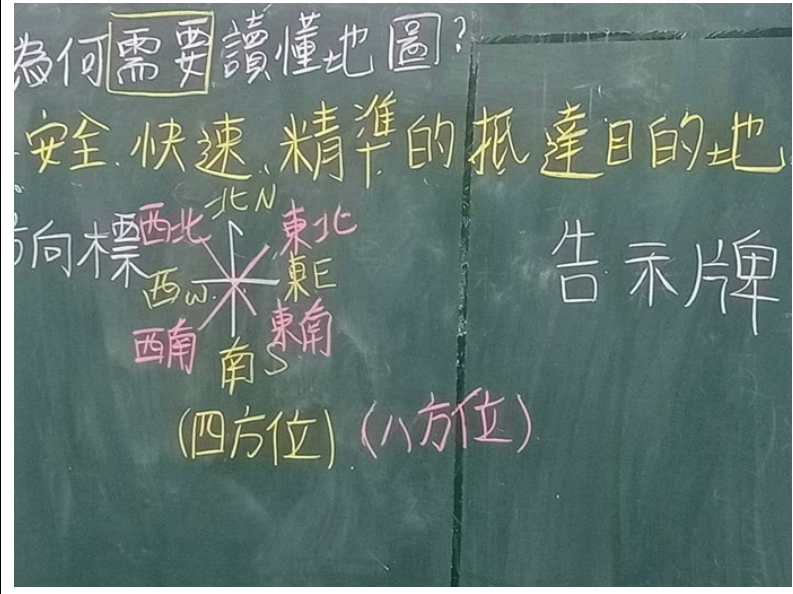 為何需要讀懂地圖?
安全、快速、精準的抵達目的地
方向標
北N
西北 東北
西W 東E
西南 東南
南S
(四方位) (八方位)
告示牌